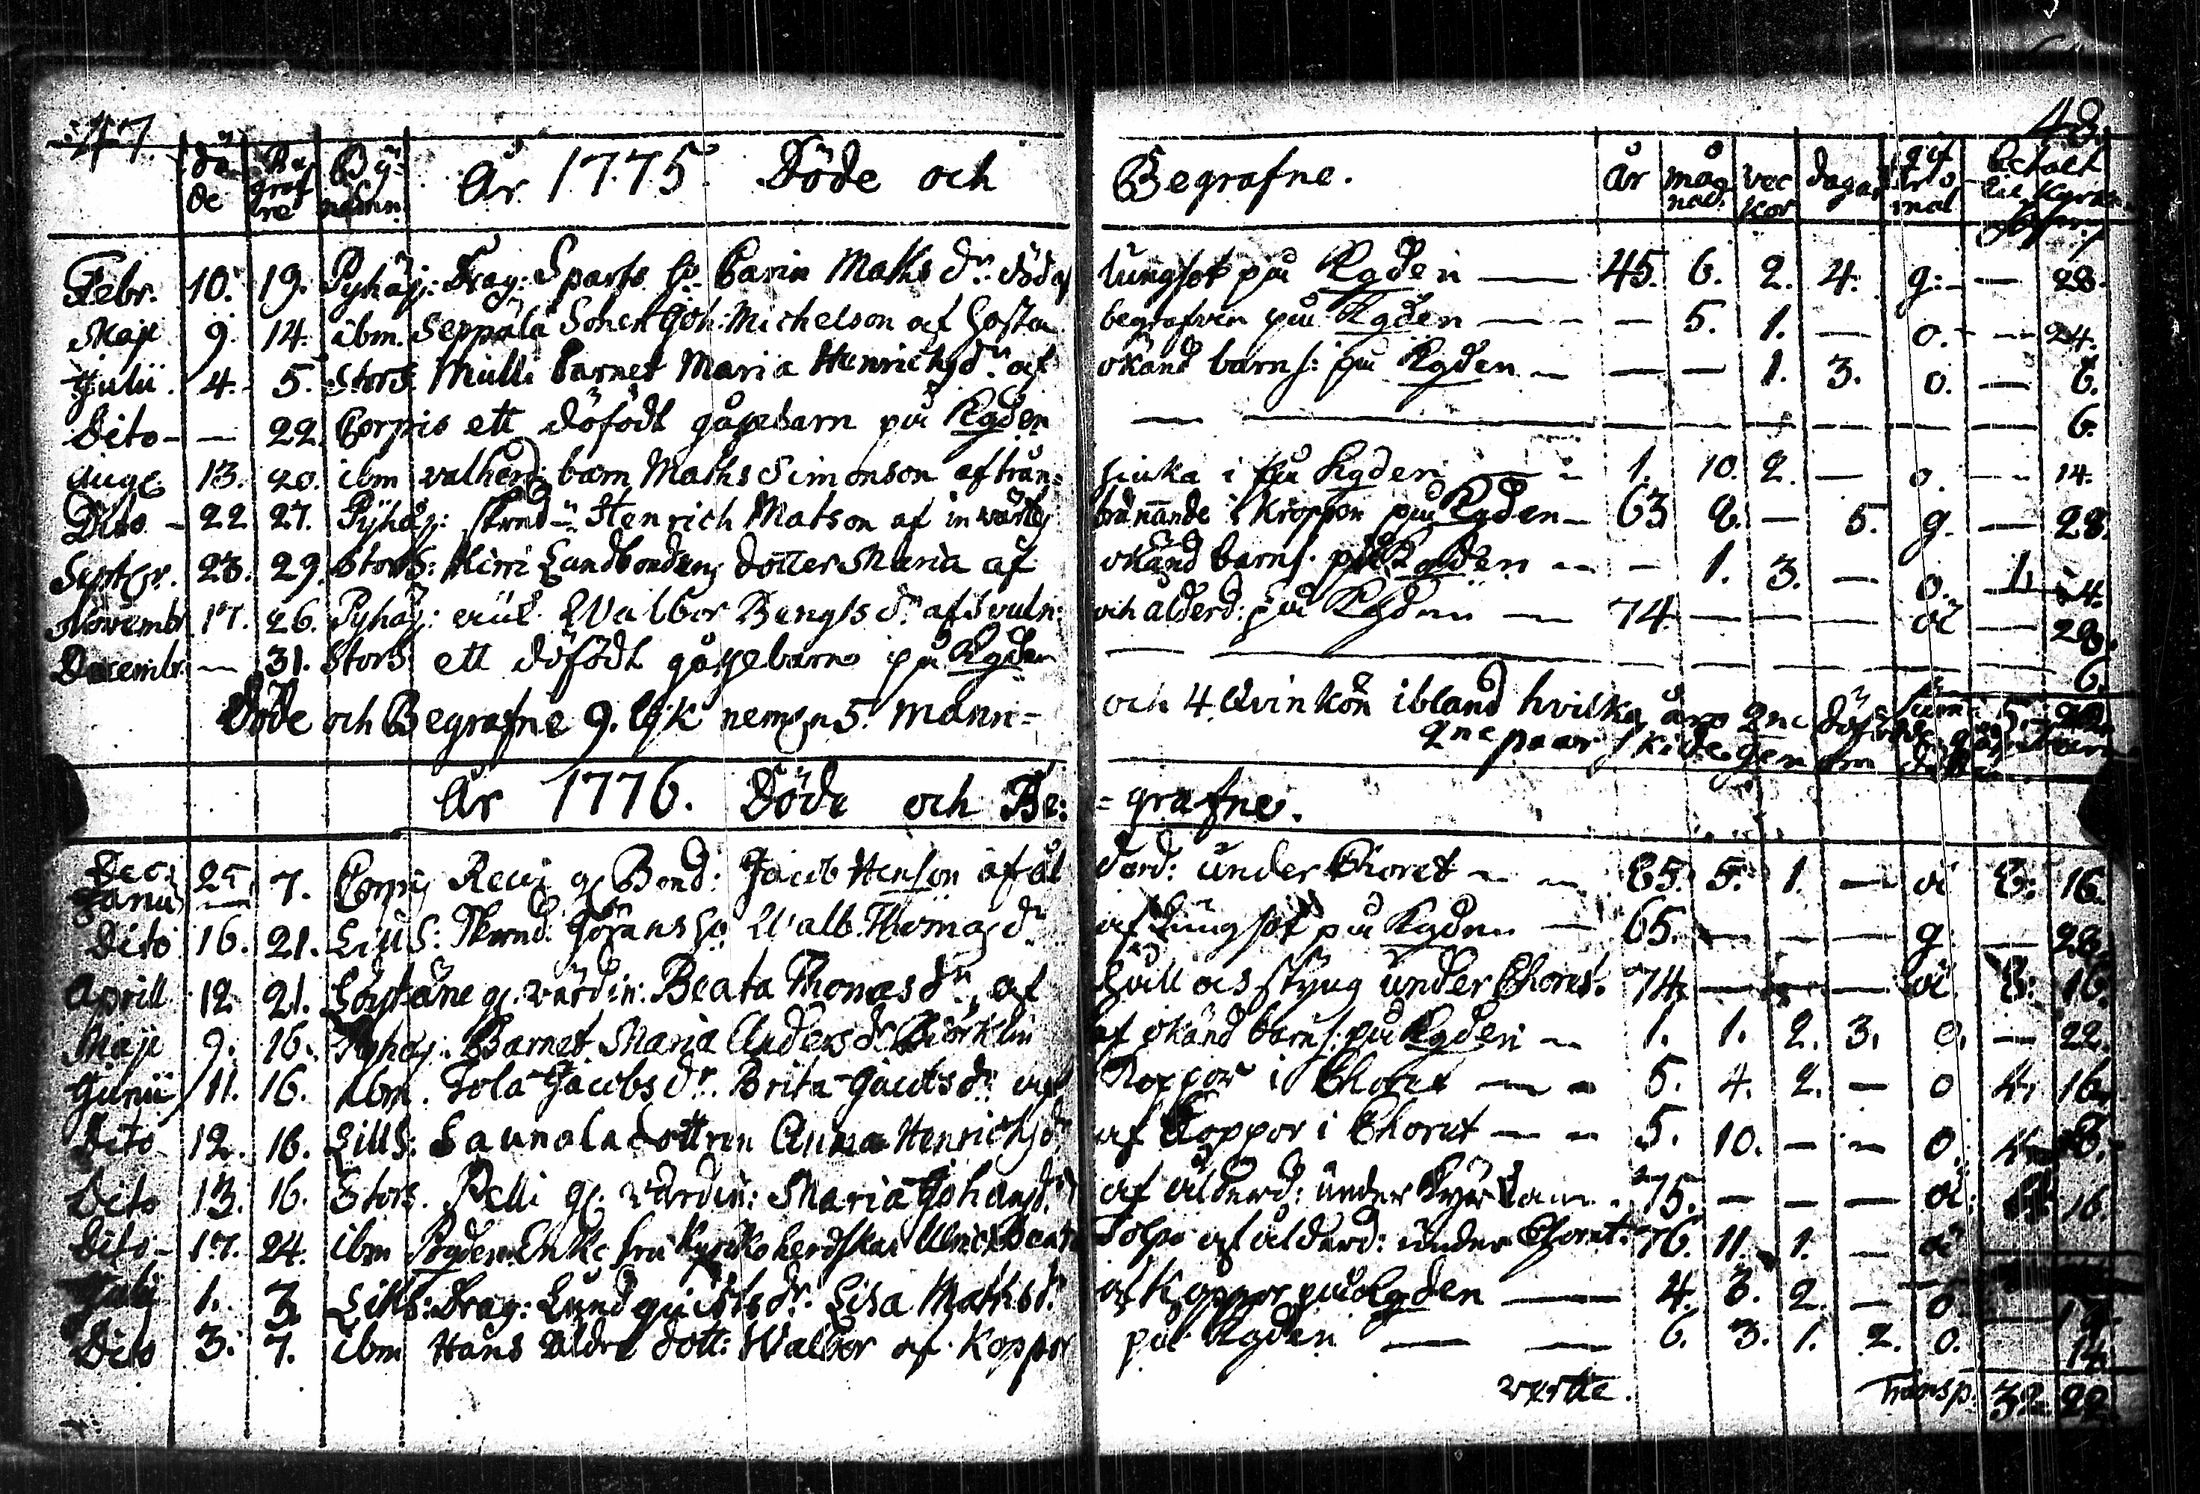 47
48.
dö- de Be graf ne By- namn År 1775. Döde och Begrafne. år må nad. vec kor dagar betalt
Febr. 10. 19. Pyhäj: Drag: Sparfs h: Carin Maths dr. döda lungsot på Kgden — 45. 6. 2. 4. g: — 28.
Maji 9. 14. ibm. Seppälä Sonen Joh: Michelson af Hosta begrafven på Kgden — — 5. 1. — o. — 24.
Julii. 4. 5. StorS Mulli barnet Maria Henrichsdr. af okänd barns: på Kgden — — — 1. 3. o. — 6.
Dito — — 22. Corpis ett döfödt gåssebarn på Kgden — — 6.
Aug. 13. 20. ibm valherd: barn Maths Simonson af trån= siuka i på Kgden — 1. 10. 2. — o. — 14.
Dito — 22 27. Pyhäj: Henrich Matson af invärtes brännande i kroppen på Kgden — 63 2. — 5. g. — 28.
Septbr. 23. 29. StorS: Kirri Landbondens dotter Maria af okänd barns. på Kgden — — 1. 3. — o. 1. 4.
Novembr. 17. 26. Pyhäj: Walbor Bengts dr. af svuln: och ålderd: på Kgden — 74 — — — — 28.
Decembr. — 31. StorS ett döfödt gåssebarn på Kgden — — 6.
Döde och Begrafne 9. lijk nemln 5. Mann= och 4. Qvinkön ibland hvilka äro 2ne
2ne paar skilde genom döden
År 1776. Döde och Be: = grafne.
Dec: Janu 25 7. Corpis g: Bond: Jacob Henson af ål derd: under Choret — 85. 5. 1. — 16.
Dito 16. 21. LillS: Görans h: Walb. Thomas dr. af Lungsot på Kgden — 65. — — — g — 28.
Aprill 12. 21. g: värdin: Beata Thomas dr. af håll och styng under Choret. 74. — — — 16.
Maji 9. 16. Pyhäj: Barnet Maria Anders dr. Björklin af okänd barns: på Kgden — 1. 1. 2. 3. o. — 22.
Junii 11. 16. ibm. Tola Jacobs dr. Brita Jacobs dr. af Koppor i Choret — 5. 4. 2. — o 4. 16.
Dito 12. 16. LillS: Saunala dottren Anna Henrichs dr af Koppor i Choret — 5. 10. — — o.
Dito 13. 16. StorS. Pelli g: värdin: Maria Johans dr. af ålderd: under Kyrckan. 75. — — — 16.
Dito — 17. 24. ibm Enke fru af ålderd: under Choret. 76. 11. 1. —
Julii 1. 3. LillS: Drag: Lundquists dr. Lisa Maths dr. af Koppor på Kgden — 4. 3. 2. — o.
Dito 3. 7. ibm Hans äldre dott: Walbor af Koppor på Kgden — 6. 3. 1. 2. o. 14.
vertte. Transp. 32 22